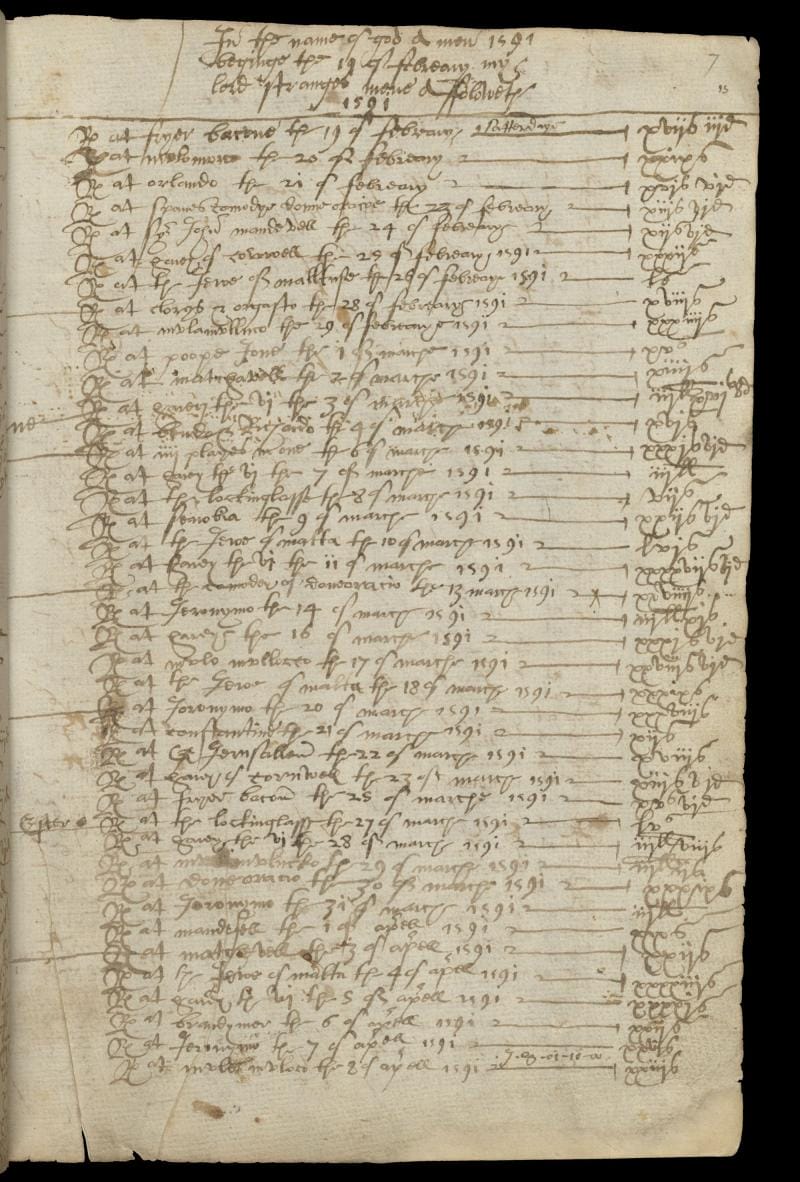 In the name of god A men 1591
beginge the 19 of febreary my
lord stranges mene A ffoloweth
1591
7
15
Rd at fryer bacune the 19 of febreary satterdaye xvijs iijd
Rd at mulomurco the 20 of febreary xxixs
Rd at orlando the 21 of febreary xvjs vjd
Rd at spanes comodye donne oracioe the 23 of febreary xiijs vjd
Rd at Syr John mandevell the 24 of febreary xijs vjd
Rd at harey of cornwell the 25 of febreary 1591 xxxijs
Rd at the Jewe of malltuse the 26 of febreary 1591 ls
Rd at clorys & orgasto the 28 of febreary 1591 xviijs
Rd at mulamulluco the 29 of febreary 1591 xxxiiijs
Rd at poope Jone the 1 of marche 1591 xvs
Rd at matchavell the 2 of marche 1591 xiiijs
ne Rd at harey the vj the 3 of marche 1591 iijll xvjs 8d
Rd at bendo & Richardo the 4 of marche 1591 xvjs
Rd at iiij playes in one the 6 of marche 1591 xxxjs vjd
Rd at harey the vj the 7 of marche 1591 iijll
Rd at the lockinglasse the 8 of marche 1591 vijs
Rd at senobia the 9 of marche 1591 xxijs vjd
Rd at the Jewe of malta the 10 of marche 1591 lvjs
Rd at harey the vj the 11 of marche 1591 xxxxvijs vjd
Rd at the comodey of doneoracio the 13 march 1591 xxviiijs
Rd at Jeronymo the 14 of march 1591 iijll xjs
Rd at harey the 16 of marche 1591 xxxjs vjd
Rd at mulo mullocco the 17 of marche 1591 xxviijs vjd
Rd at the Jewe of malta the 18 of marche 1591 xxxixs
Rd at Joronymo the 20 of march 1591 xxxviijs
Rd at constantine the 21 of marche 1591 xijs
Rd at Q Jerusallem the 22 of marche 1591 xviijs
Rd at harey of cornwell the 23 of marche 1591 xiijs vjd
Rd at fryer bacon the 25 of marche 1591 xvs vjd
Ester Rd at the lockinglasse the 27 of marche 1591 lvs
Rd at harey the vj the 28 of marche 1591 iijll viijs
Rd at mulomulucko the 29 of marche 1591 iijll ijs
Rd at doneoracio the 30 of marche 1591 xxxixs
Rd at Joronymo the 31 of marche 1591 iijll
Rd at mandefell the 1 of aprell 1591 xxxs
Rd at matchevell the 3 of aprell 1591 xxijs
Rd at the Jewe of malta the 4 of aprell 1591 xxxxiijs
Rd at harey the vj the 5 of aprell 1591 xxxxjs
Rd at brandymer the 6 of aprell 1591 xxijs
Rd at Jeronymo the 7 of aprell 1591 xxvjs
Rd at mulo muloco the 8 of aprell 1591 xxiijs